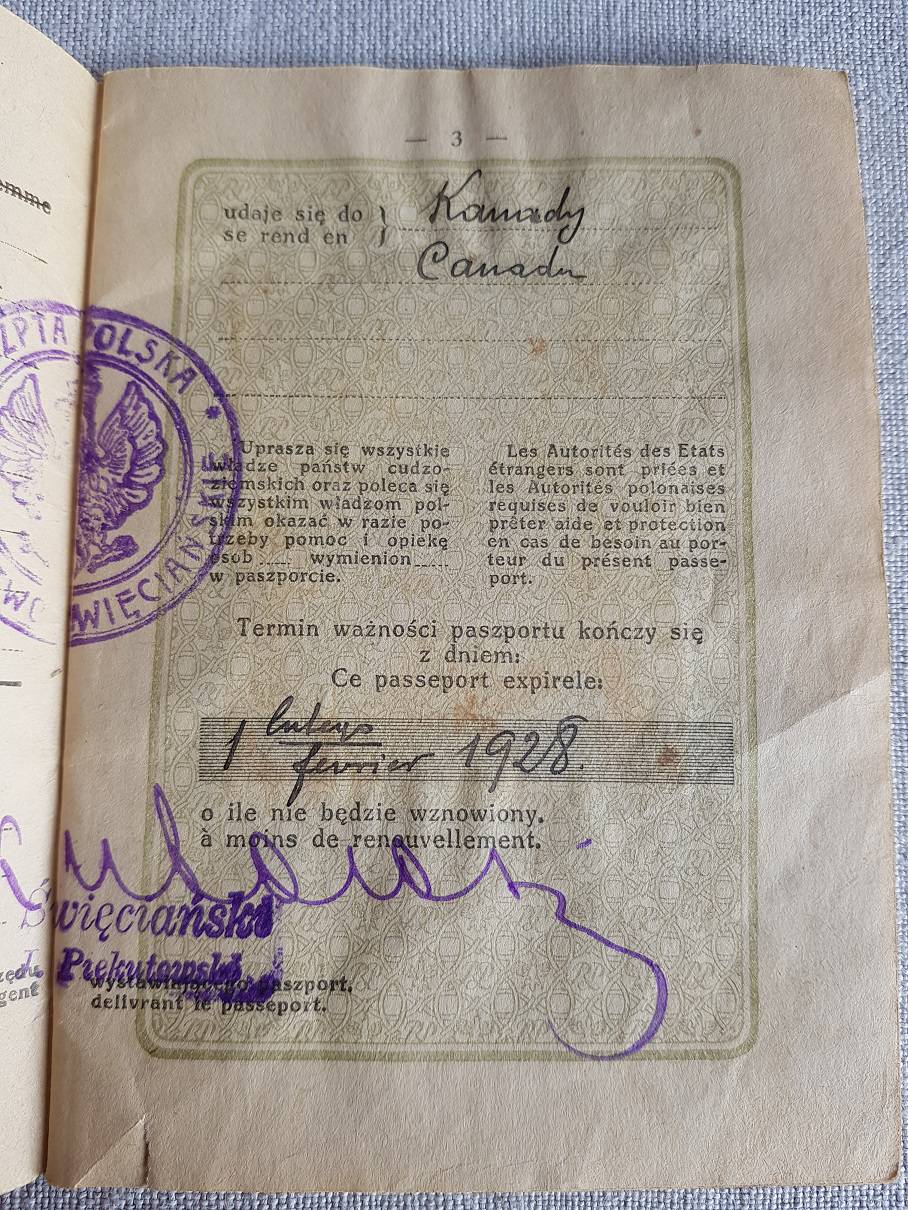 emme
— 3 —
udaje się do } Kanady
se rend en
Canada
LPTA POLSKA *
WIĘCIAŃSKIE
Uprasza się wszystkie
władze państw cudzo-
ziemskich oraz poleca się
wszystkim władzom pol-
skim okazać w razie po-
trzeby pomoc i opiekę
osób ..... wymienion.....
w paszporcie.
Les Autorités des Etats
étrangers sont priées et
les Autorités polonaises
requises de vouloir bien
prêter aide et protection
en cas de besoin au por-
teur du présent passe-
port.
Termin ważności paszportu kończy się
z dniem:
Ce passeport expirele:
1 lutego
fevrier 1928.
o ile nie będzie wznowiony.
à moins de renouvellement.
Święciański
Piekutowski
zędu, wystawiającego paszport.
gent délivrant le passeport.